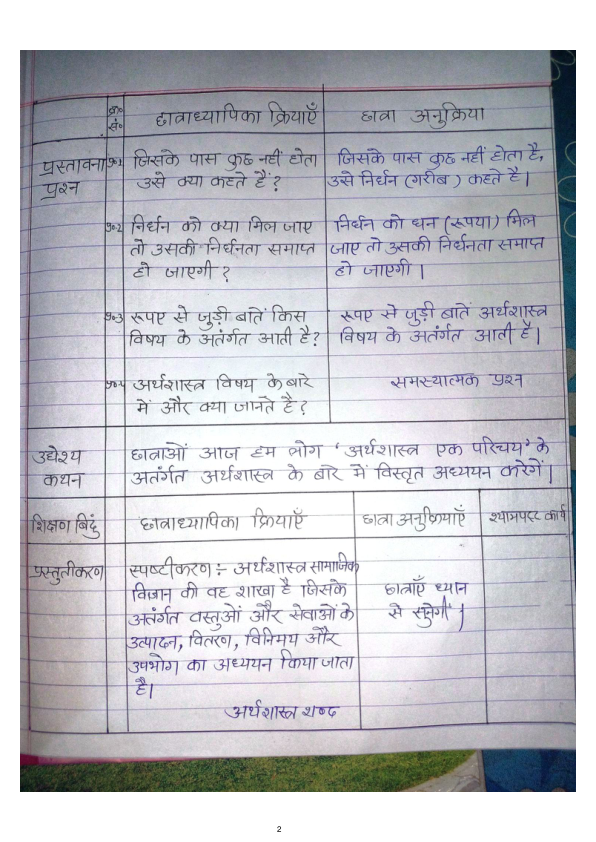 क्र०
सं०
छात्राध्यापिका क्रियाएँ
छात्रा अनुक्रिया
प्रस्तावना
प्रश्न
प्र०1 जिसके पास कुछ नहीं होता
उसे क्या कहते हैं?
जिसके पास कुछ नहीं होता है,
उसे निर्धन (गरीब) कहते है।
प्र०2 निर्धन को क्या मिल जाए
तो उसकी निर्धनता समाप्त
हो जाएगी ?
निर्धन को धन (रूपया) मिल
जाए तो उसकी निर्धनता समाप्त
हो जाएगी ।
प्र०3 रूपए से जुड़ी बातें किस
विषय के अतंर्गत आती है?
रूपए से जुड़ी बातें अर्थशास्त्र
विषय के अतंर्गत आती है।
प्र०4 अर्थशास्त्र विषय के बारे
में और क्या जानते है?
समस्यात्मक प्रश्न
उद्येश्य
कथन
छात्राओं आज हम लोग ‘अर्थशास्त्र एक परिचय’ के
अतंर्गत अर्थशास्त्र के बारे में विस्तृत अध्ययन करेगें।
शिक्षण बिदुं
छात्राध्यापिका क्रियाएँ
छात्रा अनुक्रियाएँ
श्यामपट्ट कार्य
प्रस्तुतीकरण
स्पष्टीकरण :- अर्थशास्त्र सामाजिक
विज्ञान की वह शाखा है जिसके
अतंर्गत वस्तुओं और सेवाओं के
उत्पादन, वितरण, विनिमय और
उपभोग का अध्ययन किया जाता
है।
अर्थशास्त्र शब्द
छात्राएँ ध्यान
से सुनेगीं।
2